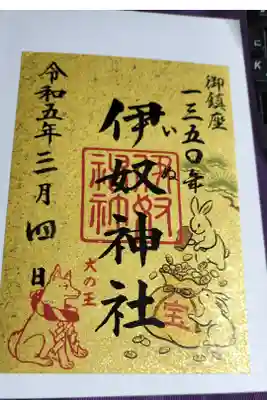 御鎮座
一三五〇年
伊奴神社
いぬ
令和五年三月四日
犬の王
宝